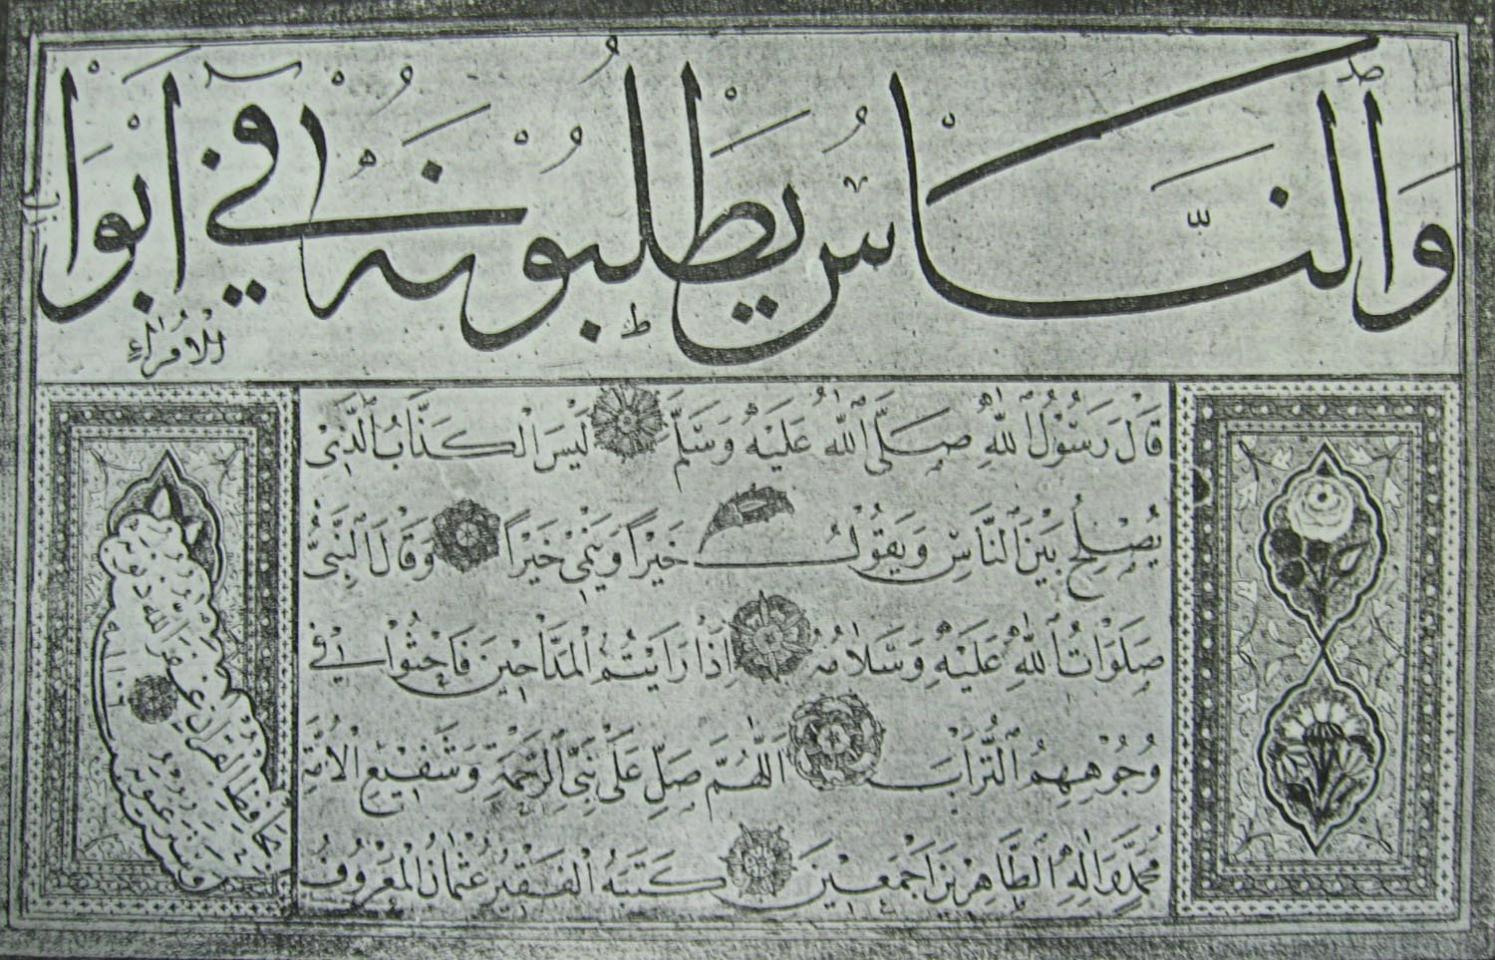 وَالنَّاسُ يَطْلُبُونَهُ فِي أَبْوَا
الْأُمَرَاءِ
قَالَ رَسُولُ اللهِ صَلَّى اللهُ عَلَيْهِ وَسَلَّمَ لَيْسَ الْكَذَّابُ الَّذِي
يُصْلِحُ بَيْنَ النَّاسِ وَيَقُولُ خَيْرًا وَيَنْمِي خَيْرًا وَقَالَ النَّبِيُّ
صَلَوَاتُ اللهِ عَلَيْهِ وَسَلَامُهُ إِذَا رَأَيْتُمُ الْمَدَّاحِينَ فَاحْثُوا فِي
وُجُوهِهِمُ التُّرَابَ اَللّٰهُمَّ صَلِّ عَلَى نَبِيِّ الرَّحْمَةِ وَشَفِيعِ الْأُمَّةِ
مُحَمَّدٍ وَاٰلِهِ الطَّاهِرِينَ اَجْمَعِينَ كَتَبَهُ الْفَقِيرُ عُثْمَانُ الْمَعْرُوفُ
بحافظ القرآن غفر الله ذنوبه
وستر عيوبه